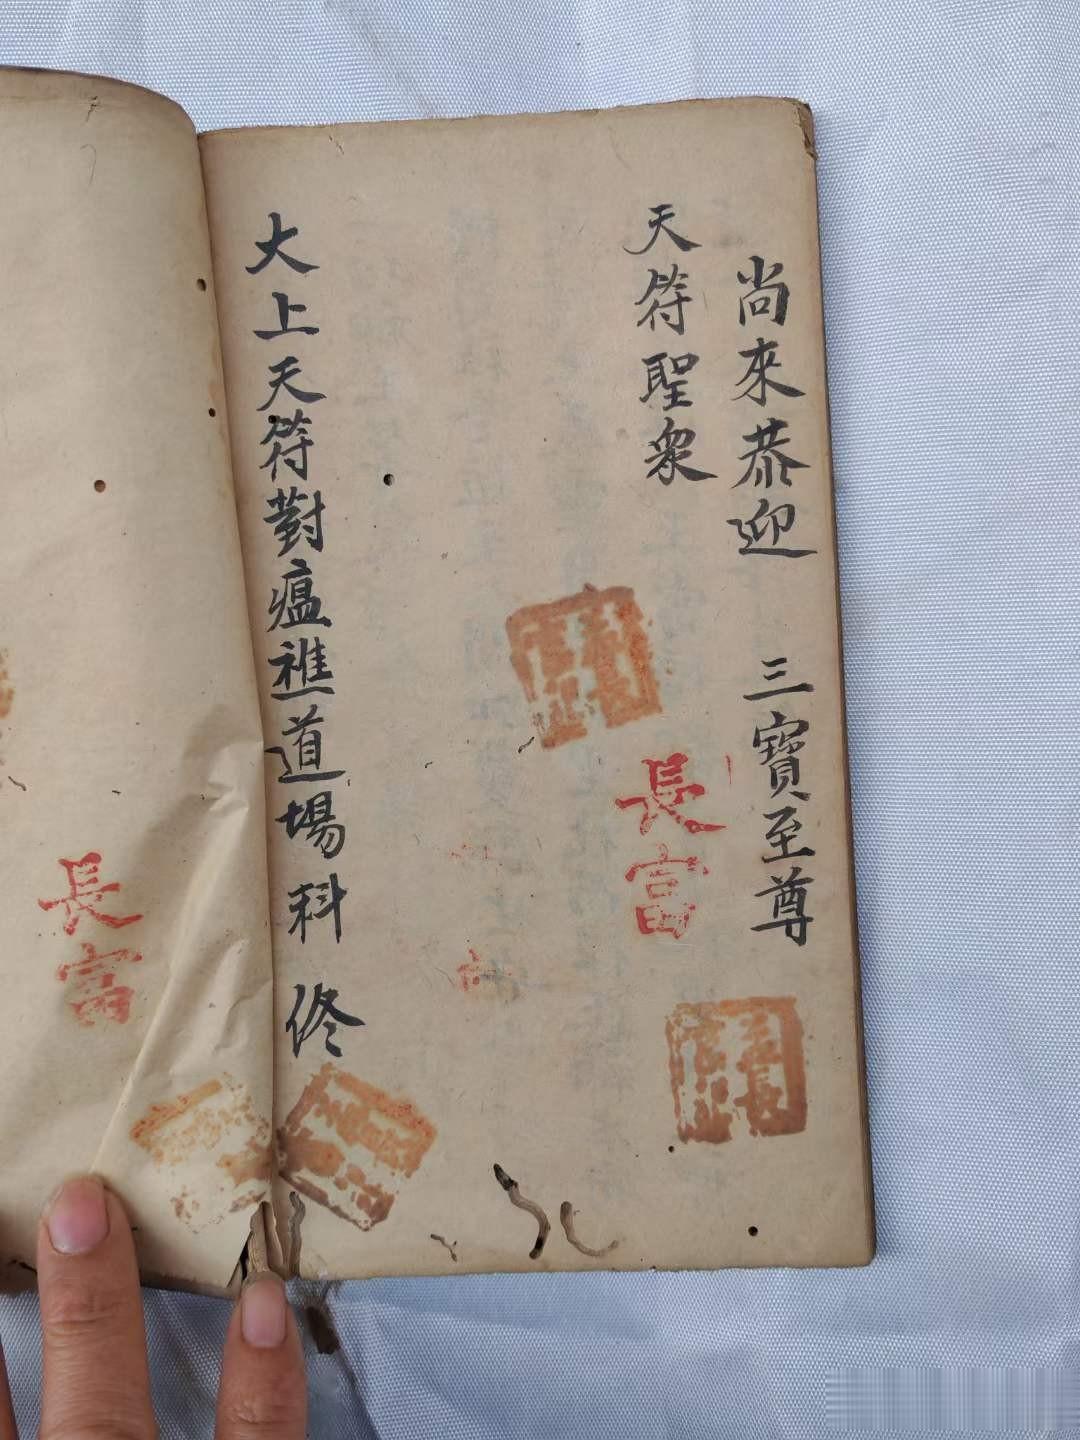 尚來恭迎 三寶至尊
天符聖衆
長富
大上天符對瘟醮道場科 终
長富